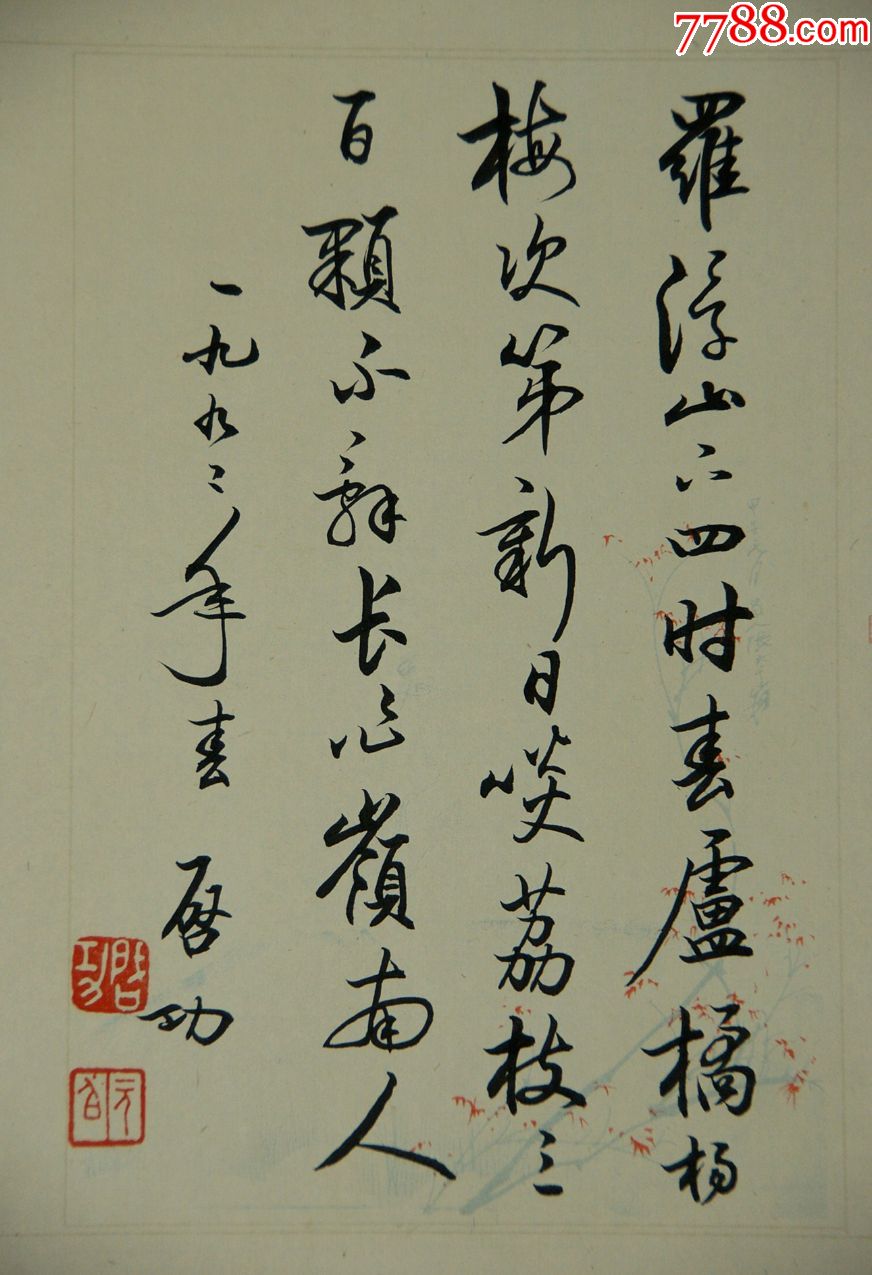 7788.com
羅浮山下四时春盧橘杨
梅次第新日啖荔枝三
百顆不辞长作嶺南人
一九九二年春
啓功
啓功
元白